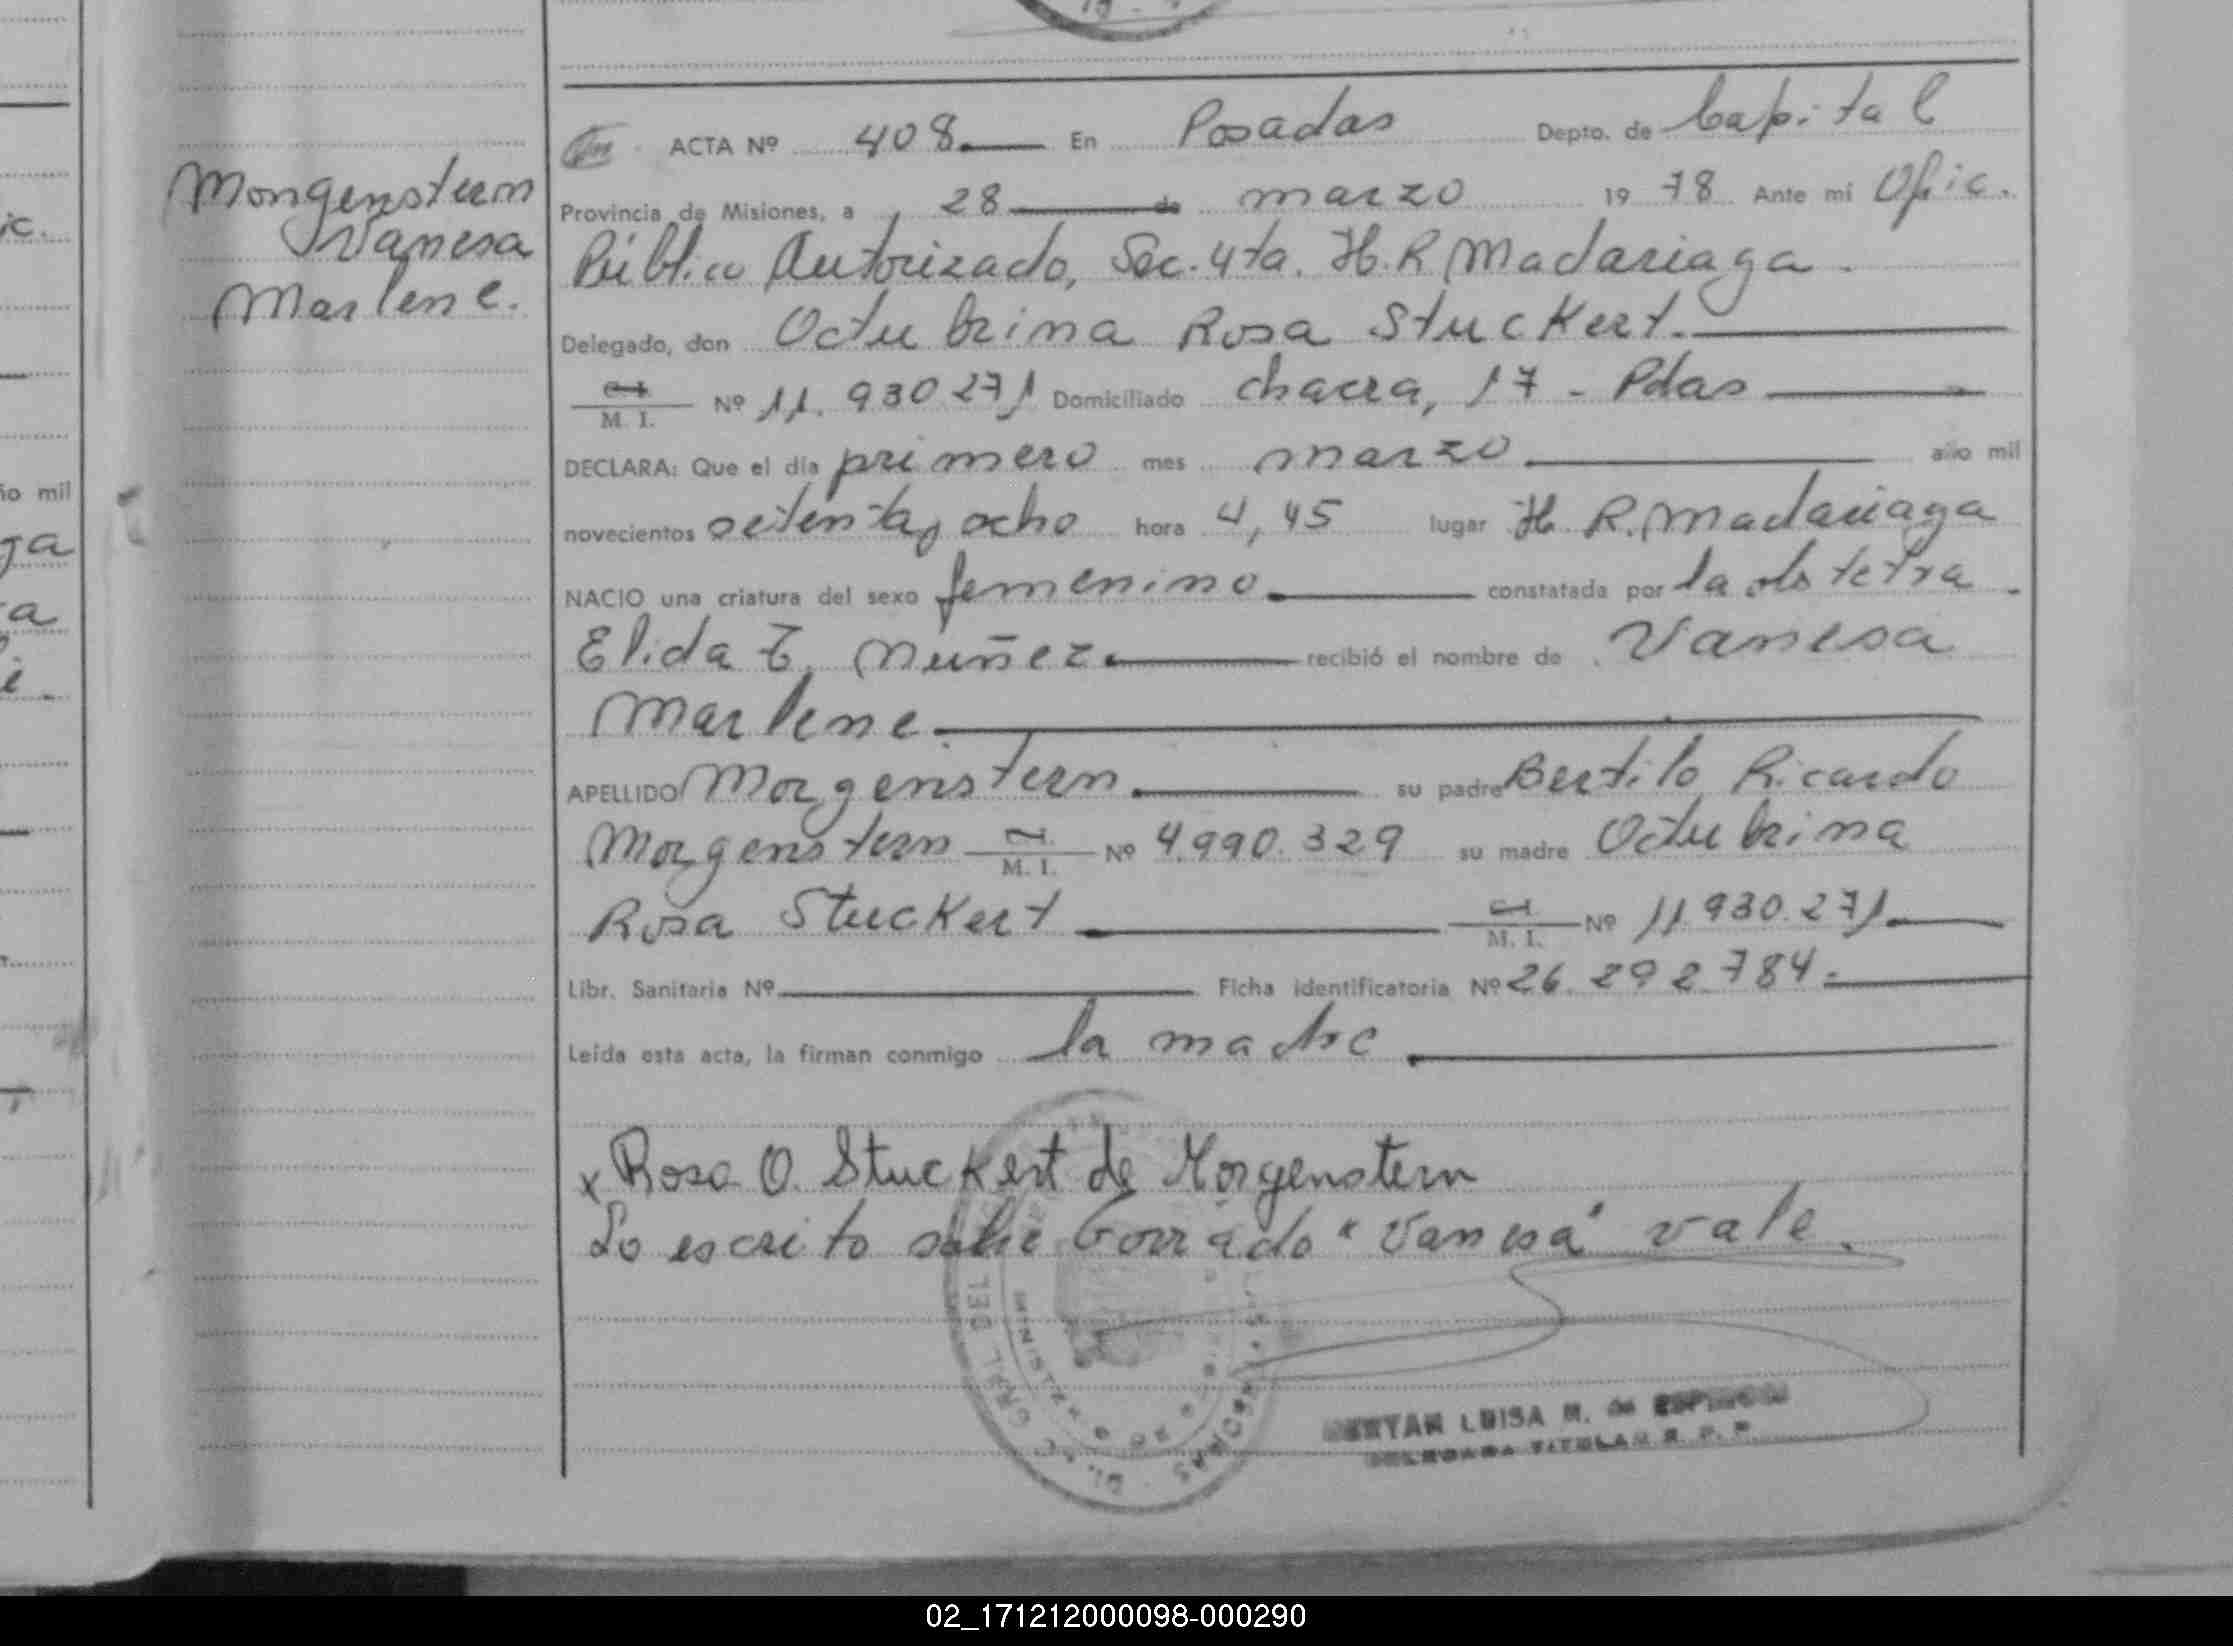 Morgenstern
Vanesa
Marlene.
ACTA Nº 408 En Posadas Depto. de Capital
Provincia de Misiones, a 28 de marzo 1978 Ante mi Ofic.
Público Autorizado, Sec. 4ta. H. R. Madariaga.
Delegado, don Octubrina Rosa Stuckert.
M. I. Nº 11.930.271 Domiciliado chacra, 17 - Pdas
DECLARA: Que el día primero mes marzo año mil
novecientos setenta y ocho hora 4,45 lugar H. R. Madariaga
NACIO una criatura del sexo femenino constatada por la obstetra.
Elida T. Nuñez recibió el nombre de Vanesa
Marlene
APELLIDO Morgenstern su padre Bertilo Ricardo
Morgenstern M. I. Nº 4.990.329 su madre Octubrina
Rosa Stuckert M. I. Nº 11.930.271
Libr. Sanitaria Nº Ficha identificatoria Nº 26.292.784
Leída esta acta, la firman conmigo la madre
x Rosa O. Stuckert de Morgenstern
Lo escrito sobre borrado "Vanesa" vale.
LUISA M. de
TITULAR R. P. P.
02_171212000098-000290